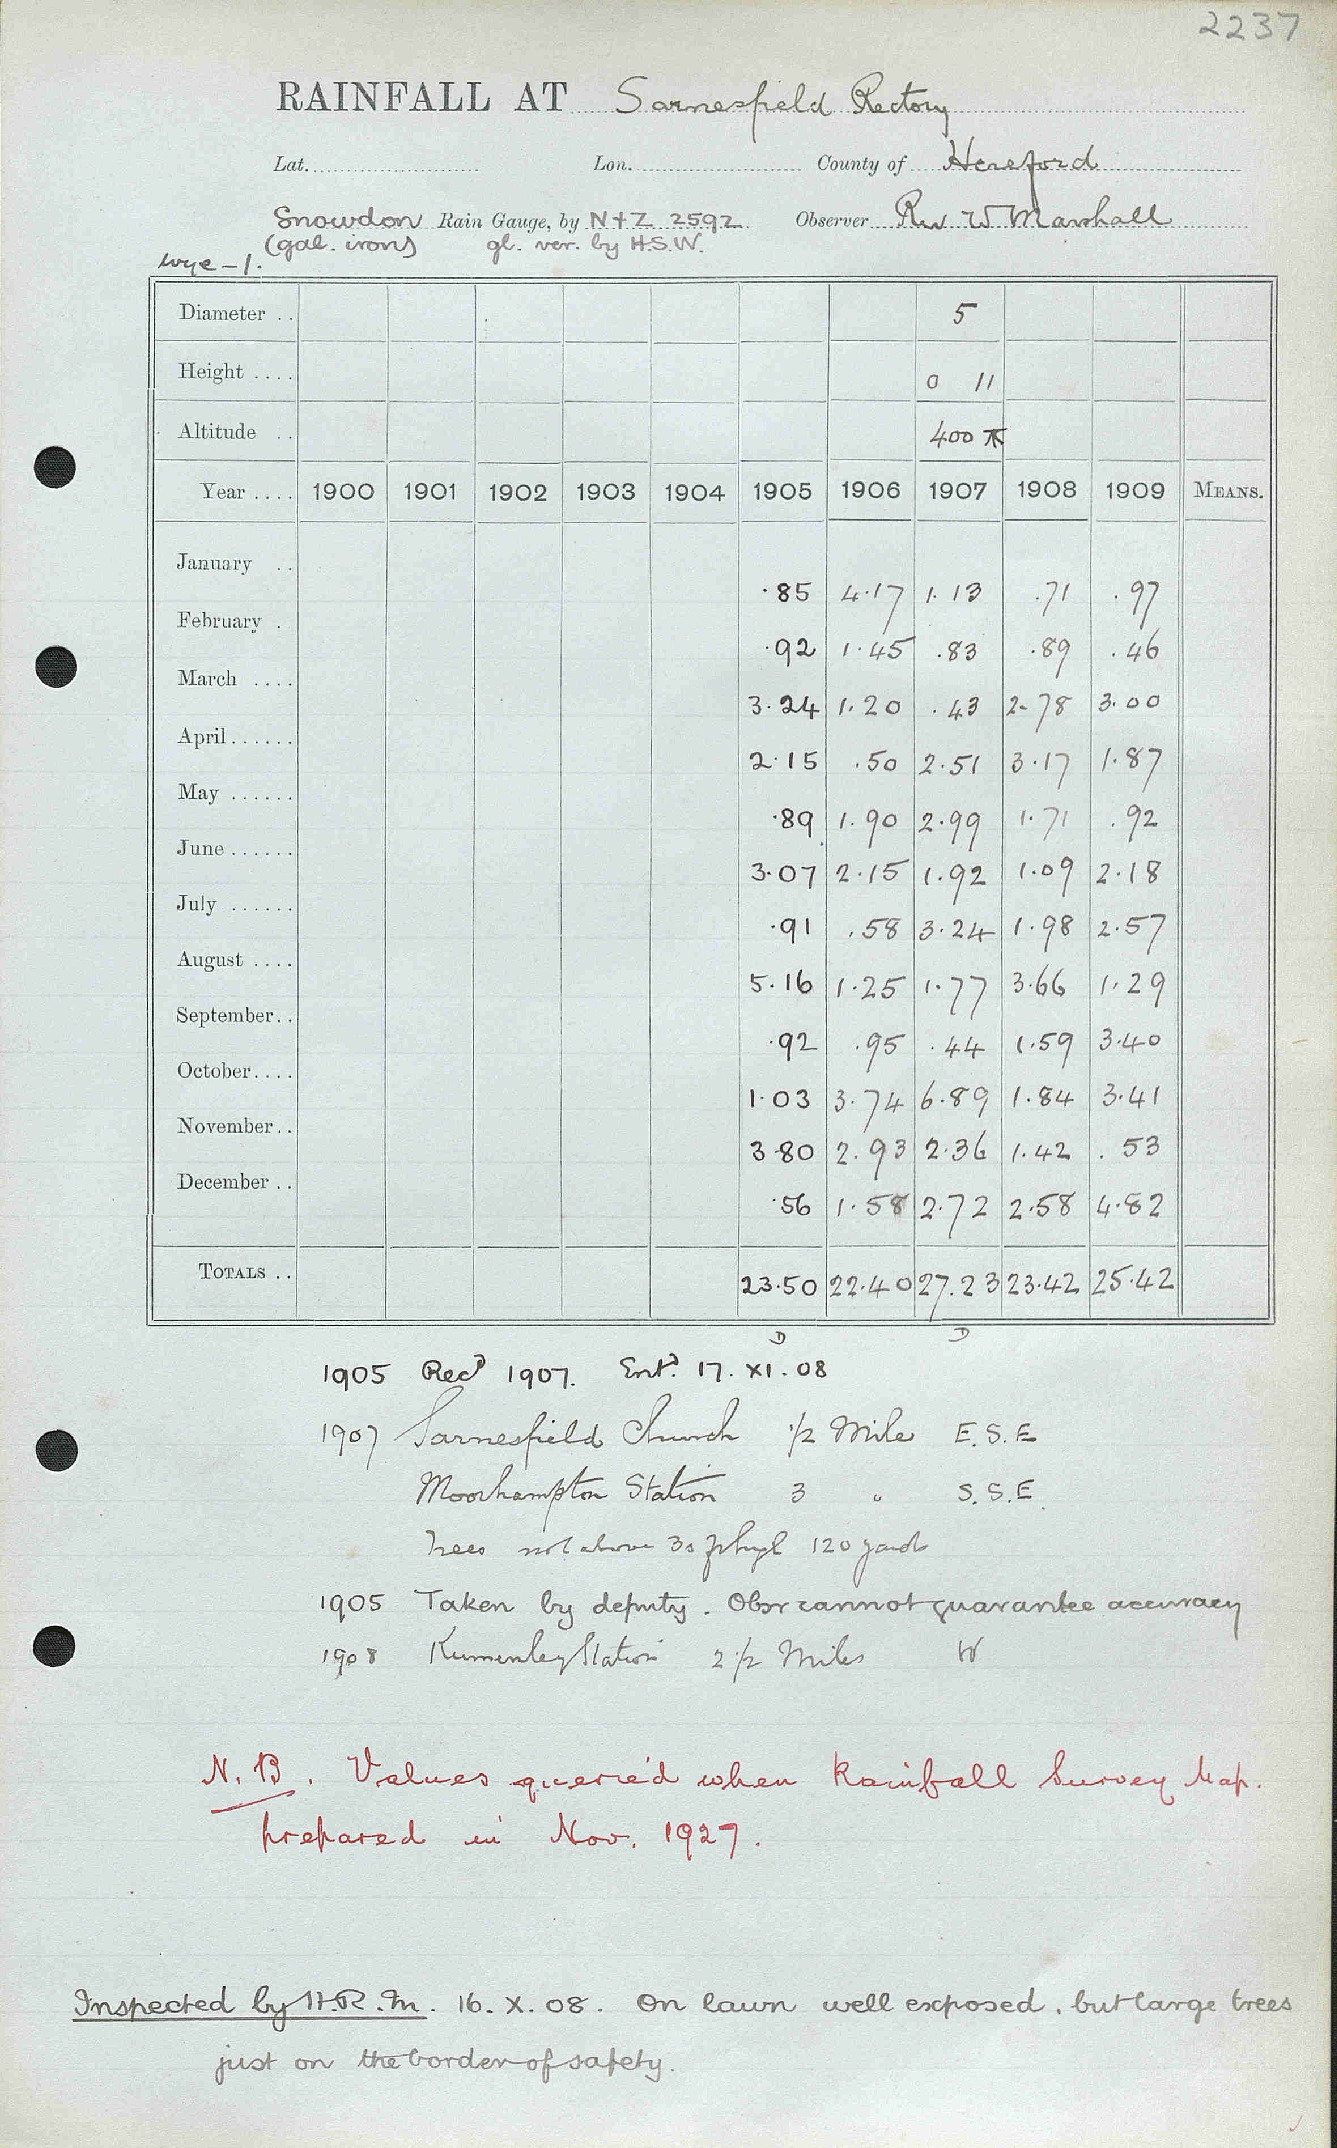 2237
RAINFALL AT Sarnesfield Rectory
Lat. Lon. County of Hereford
Snowdon Rain Gauge, by N+Z 2592 Observer Rev W Marshall
(gal. iron) gl. ver. by H.S.W.
Wye - 1.
Diameter .. 5
Height .... 0 11
Altitude .. 400
Year .... 1900 1901 1902 1903 1904 1905 1906 1907 1908 1909 MEANS.
January .. .85 4.17 1.13 .71 .97
February . .92 1.45 .83 .89 .46
March .... 3.24 1.20 .43 2.78 3.00
April...... 2.15 .50 2.51 3.17 1.87
May ...... .89 1.90 2.99 1.71 .92
June ...... 3.07 2.15 1.92 1.09 2.18
July ...... .91 .58 3.24 1.98 2.57
August .... 5.16 1.25 1.77 3.66 1.29
September.. .92 .95 .44 1.59 3.40
October.... 1.03 3.74 6.89 1.84 3.41
November.. 3.80 2.93 2.36 1.42 .53
December .. .56 1.58 2.72 2.58 4.82
TOTALS .. 23.50 22.40 27.23 23.42 25.42
D D
1905 Recd 1907. Entd. 17. XI. 08
1907 Sarnesfield Church 1/2 Mile E.S.E
Moorhampton Station 3 " S.S.E.
Trees not above 30 ft high 120 yards
1905 Taken by deputy. Obsr cannot guarantee accuracy
1908 Station 2 1/2 Miles W
N.B. Values queried when Rainfall Survey Map.
prepared in Nov. 1927.
Inspected by H.R.M. 16. X. 08. On lawn well exposed, but large trees
just on the border of safety.